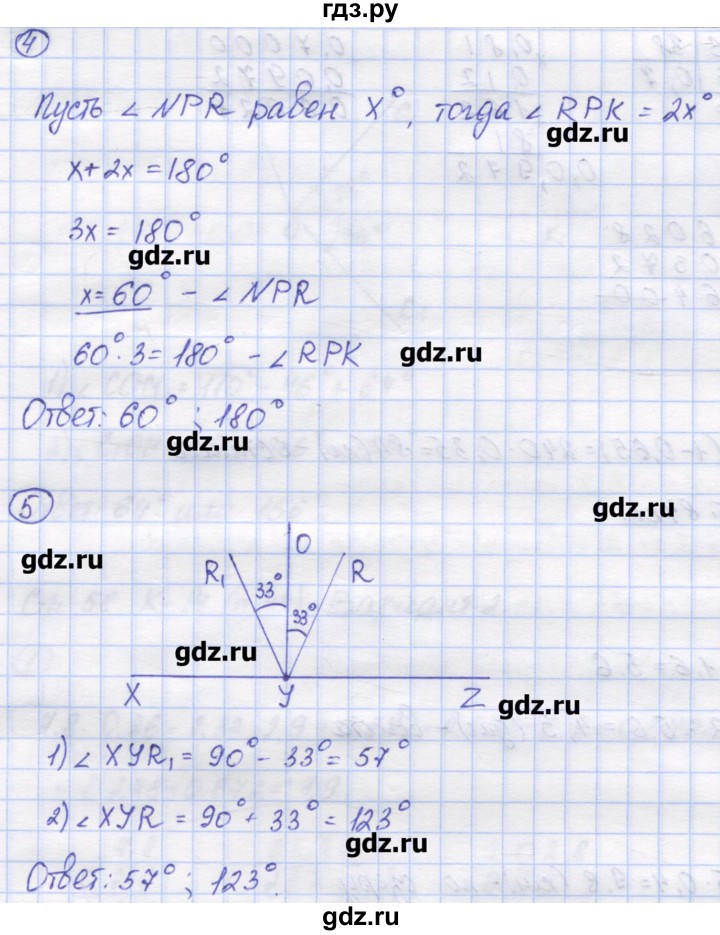 гдз.ру
4
Пусть ∠ NPR равен x°, тогда ∠ RPK = 2x°
gdz.ru
x+2x=180°
3x=180°
gdz.ru
x=60° - ∠ NPR
60°·3=180° - ∠ RPK
gdz.ru
Ответ: 60° ; 180°
gdz.ru
5
gdz.ru
O
gdz.ru
R₁ 33° 33° R
gdz.ru
X Y Z
gdz.ru
1) ∠ XYR₁ = 90° - 33° = 57°
2) ∠ XYR = 90° + 33° = 123°
gdz.ru
Ответ: 57° ; 123°.
gdz.ru